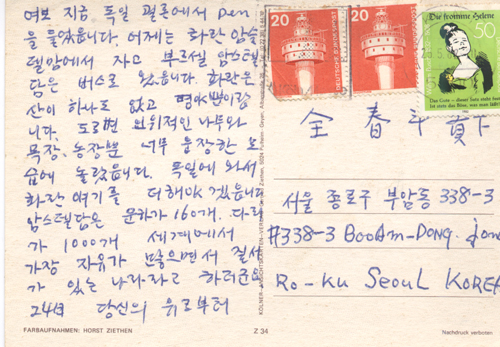 여보 지금 독일 쾰른에서 Pen
을 들었읍니다. 어제는 화란 암스
텔담에서 자고 부르셀 암스텔
담은 버스로 왔읍니다. 화란은
산이 하나도 없고 평야뿐이랍
니다. 도로변 인위적인 나무와
목장, 농장뿐 너무 웅장한 모
습에 놀랐읍니다. 독일에 와서
화란 얘기를 더해야겠읍니다
암스텔담은 운하가 160개. 다리
가 1000개 세계에서
가장 자유가 많으면서 질서
가 있는 나라라고 하더군요
24日 당신의 위로부터
FARBAUFNAHMEN: HORST ZIETHEN
Z 34
Nachdruck verboten
20
20
DEUTSCHE BUNDESPOST
Die fromme Helene
50
Das Gute – dieser Satz steht fest –
Ist stets das Böse, was man läßt!
全 春 斗 貴下
서울 종로구 부암동 338-3
#338-3 BooAm-DONG. Jong
Ro-Ku SeouL KOREA